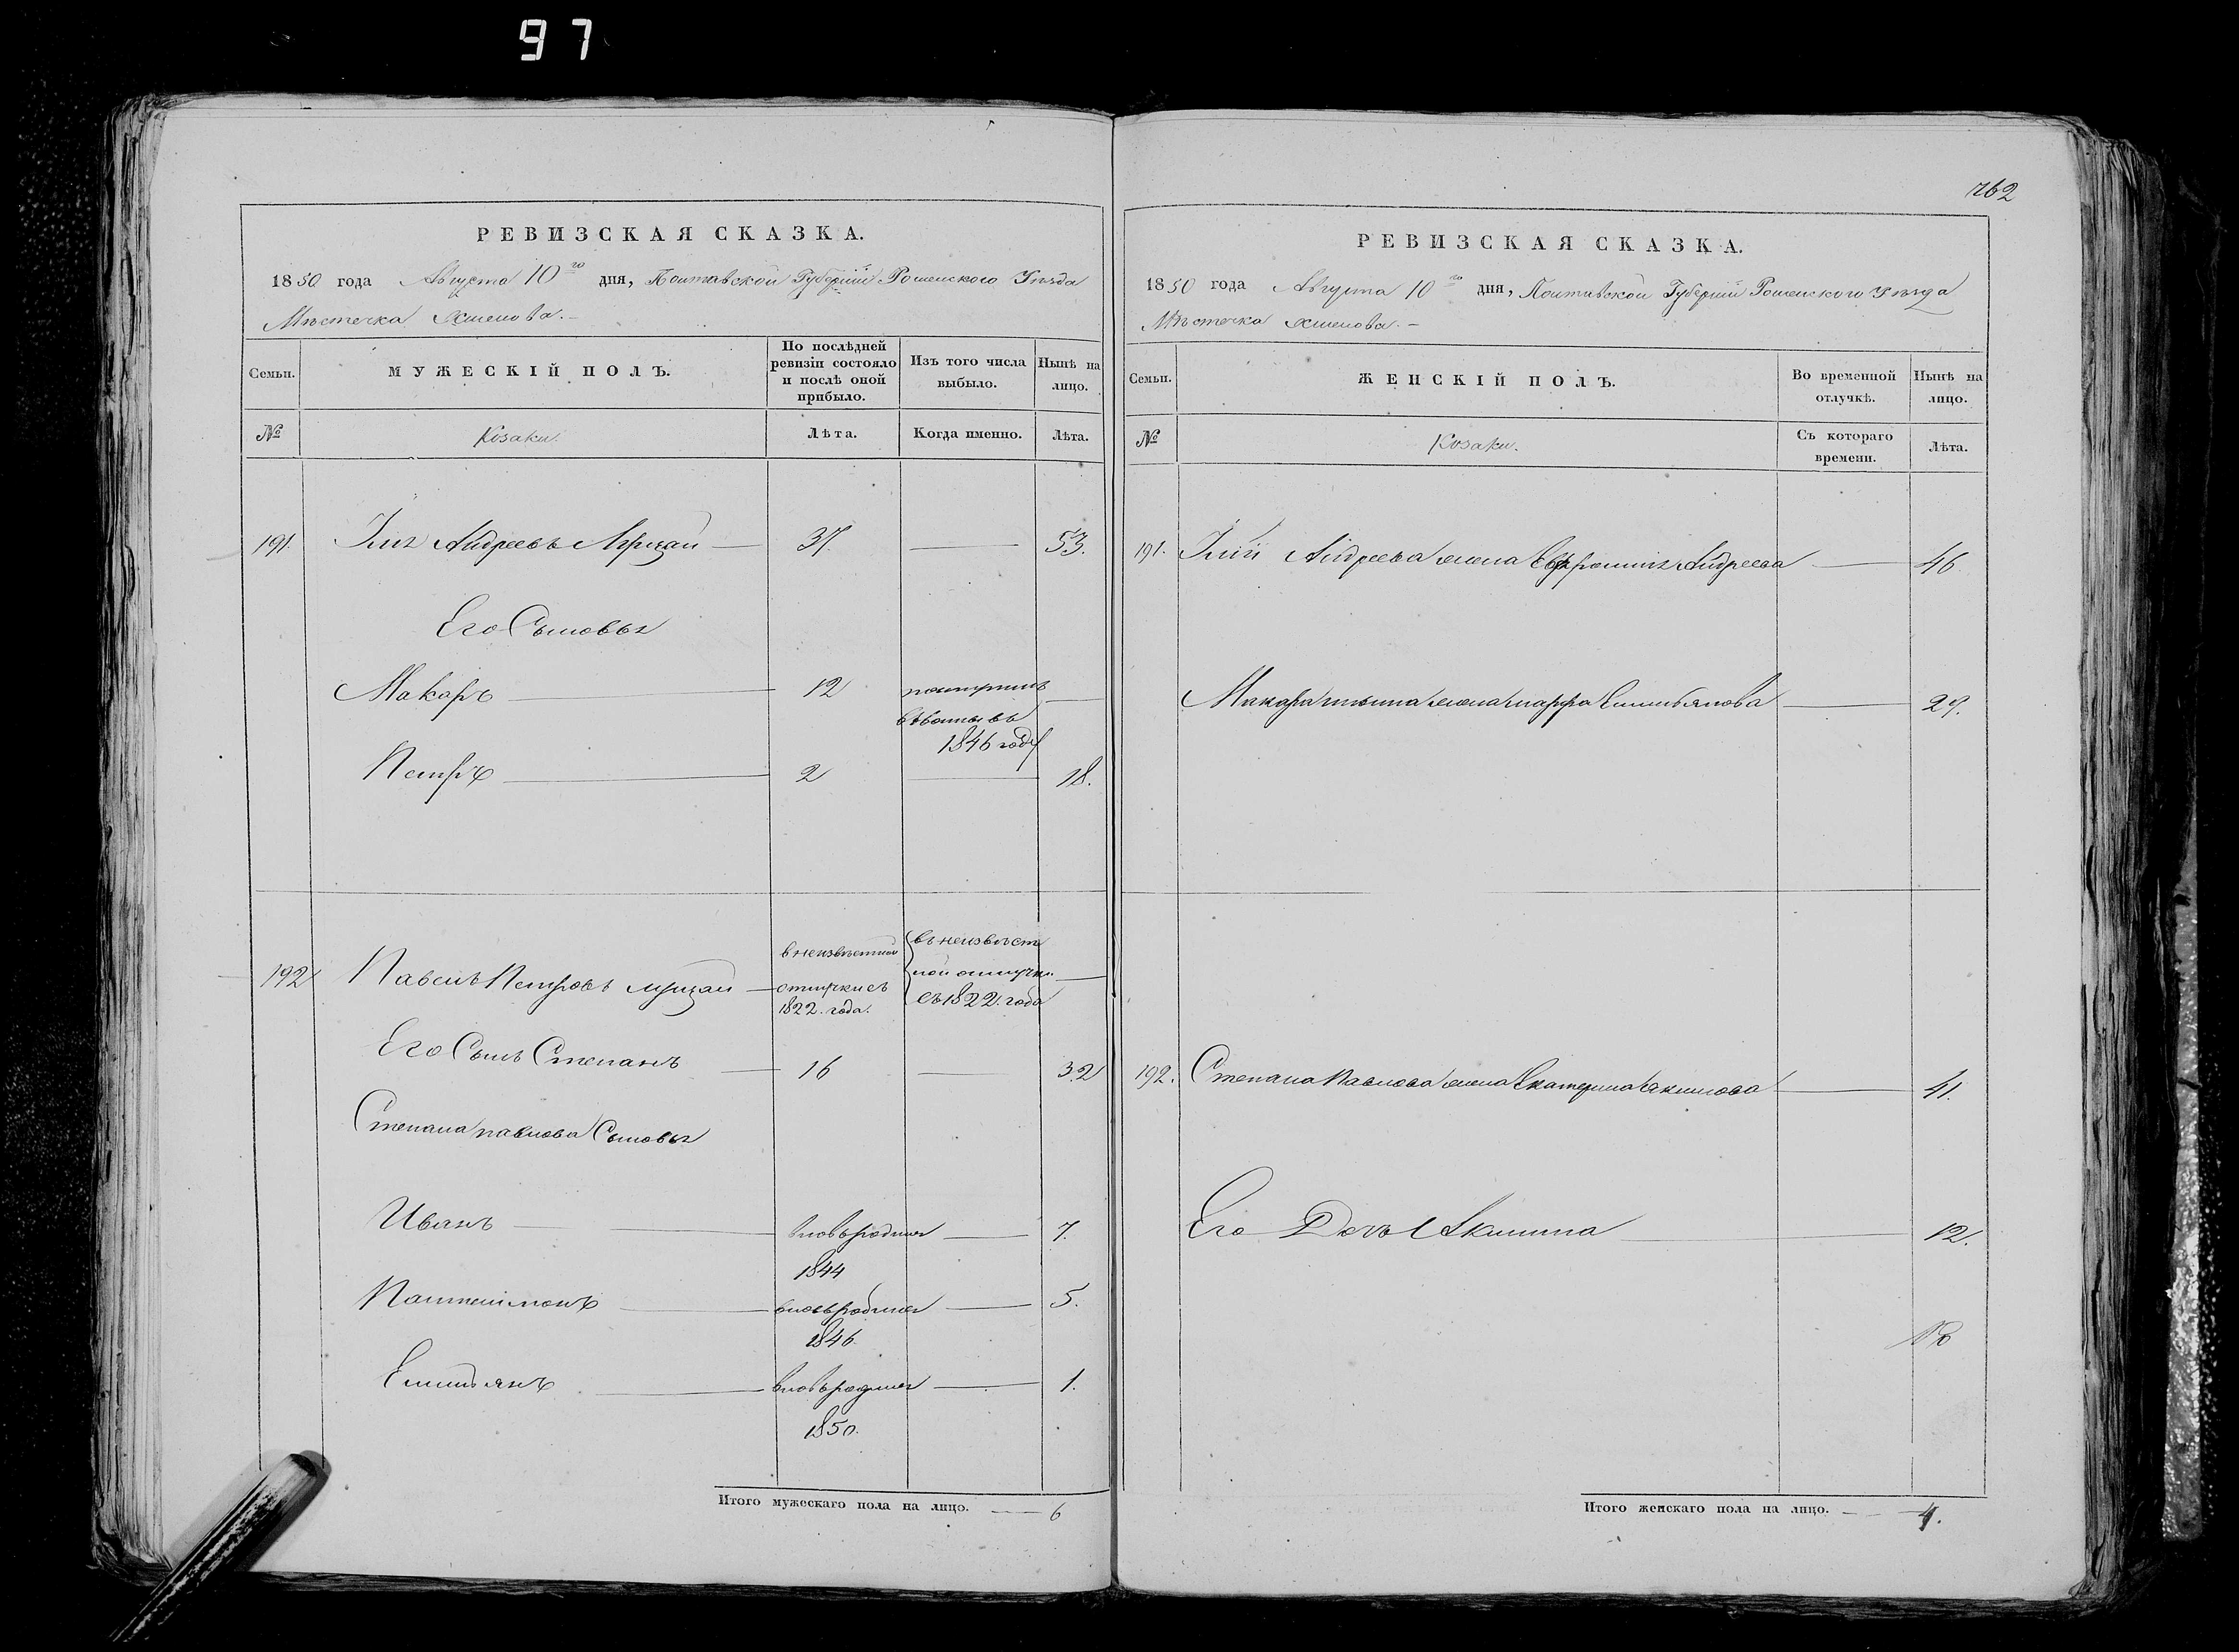 97
762
РЕВИЗСКАЯ СКАЗКА.
1850 года Августа 10го дня, Полтавской Губерніи Роменского Уезда
Местечка
Семьи.
МУЖЕСКІЙ ПОЛЪ.
По послѣдней ревизіи состояло и послѣ оной прибыло.
Изъ того числа выбыло.
Нынѣ на лицо.
№
Козаки.
Лѣта.
Когда именно.
Лѣта.
191. Андреевъ 37. 53.
Его Сыновья
Макаръ 12 поступилъ
1846 году
Петръ 2 18.
192 Павелъ Петровъ в неизвестной въ неизвест
отлучки съ ной отлучки
1822. года. съ 1822. года
Его Сынъ Степанъ 16 32
Степана Павлова Сыновья
Иванъ вновьродился 7.
1844
Пантелимонъ вновьродился 5.
1846.
Емельянъ вновьродился 1.
1850.
Итого мужескаго пола на лицо. 6
РЕВИЗСКАЯ СКАЗКА.
1850 года Августа 10го дня, Полтавской Губерніи Роменского Уезда
Местечка
Семьи.
ЖЕНСКІЙ ПОЛЪ.
Во временной отлучкѣ.
Нынѣ на лицо.
№
Козаки.
Съ котораго времени.
Лѣта.
191. Андреева жена Андреева 46
Макара Ильина жена Марфа Емельянова 29.
192. Степана Павлова жена Екатерина Акимова 41.
Его Дочь Акилина 12.
Итого женскаго пола на лицо. 4.